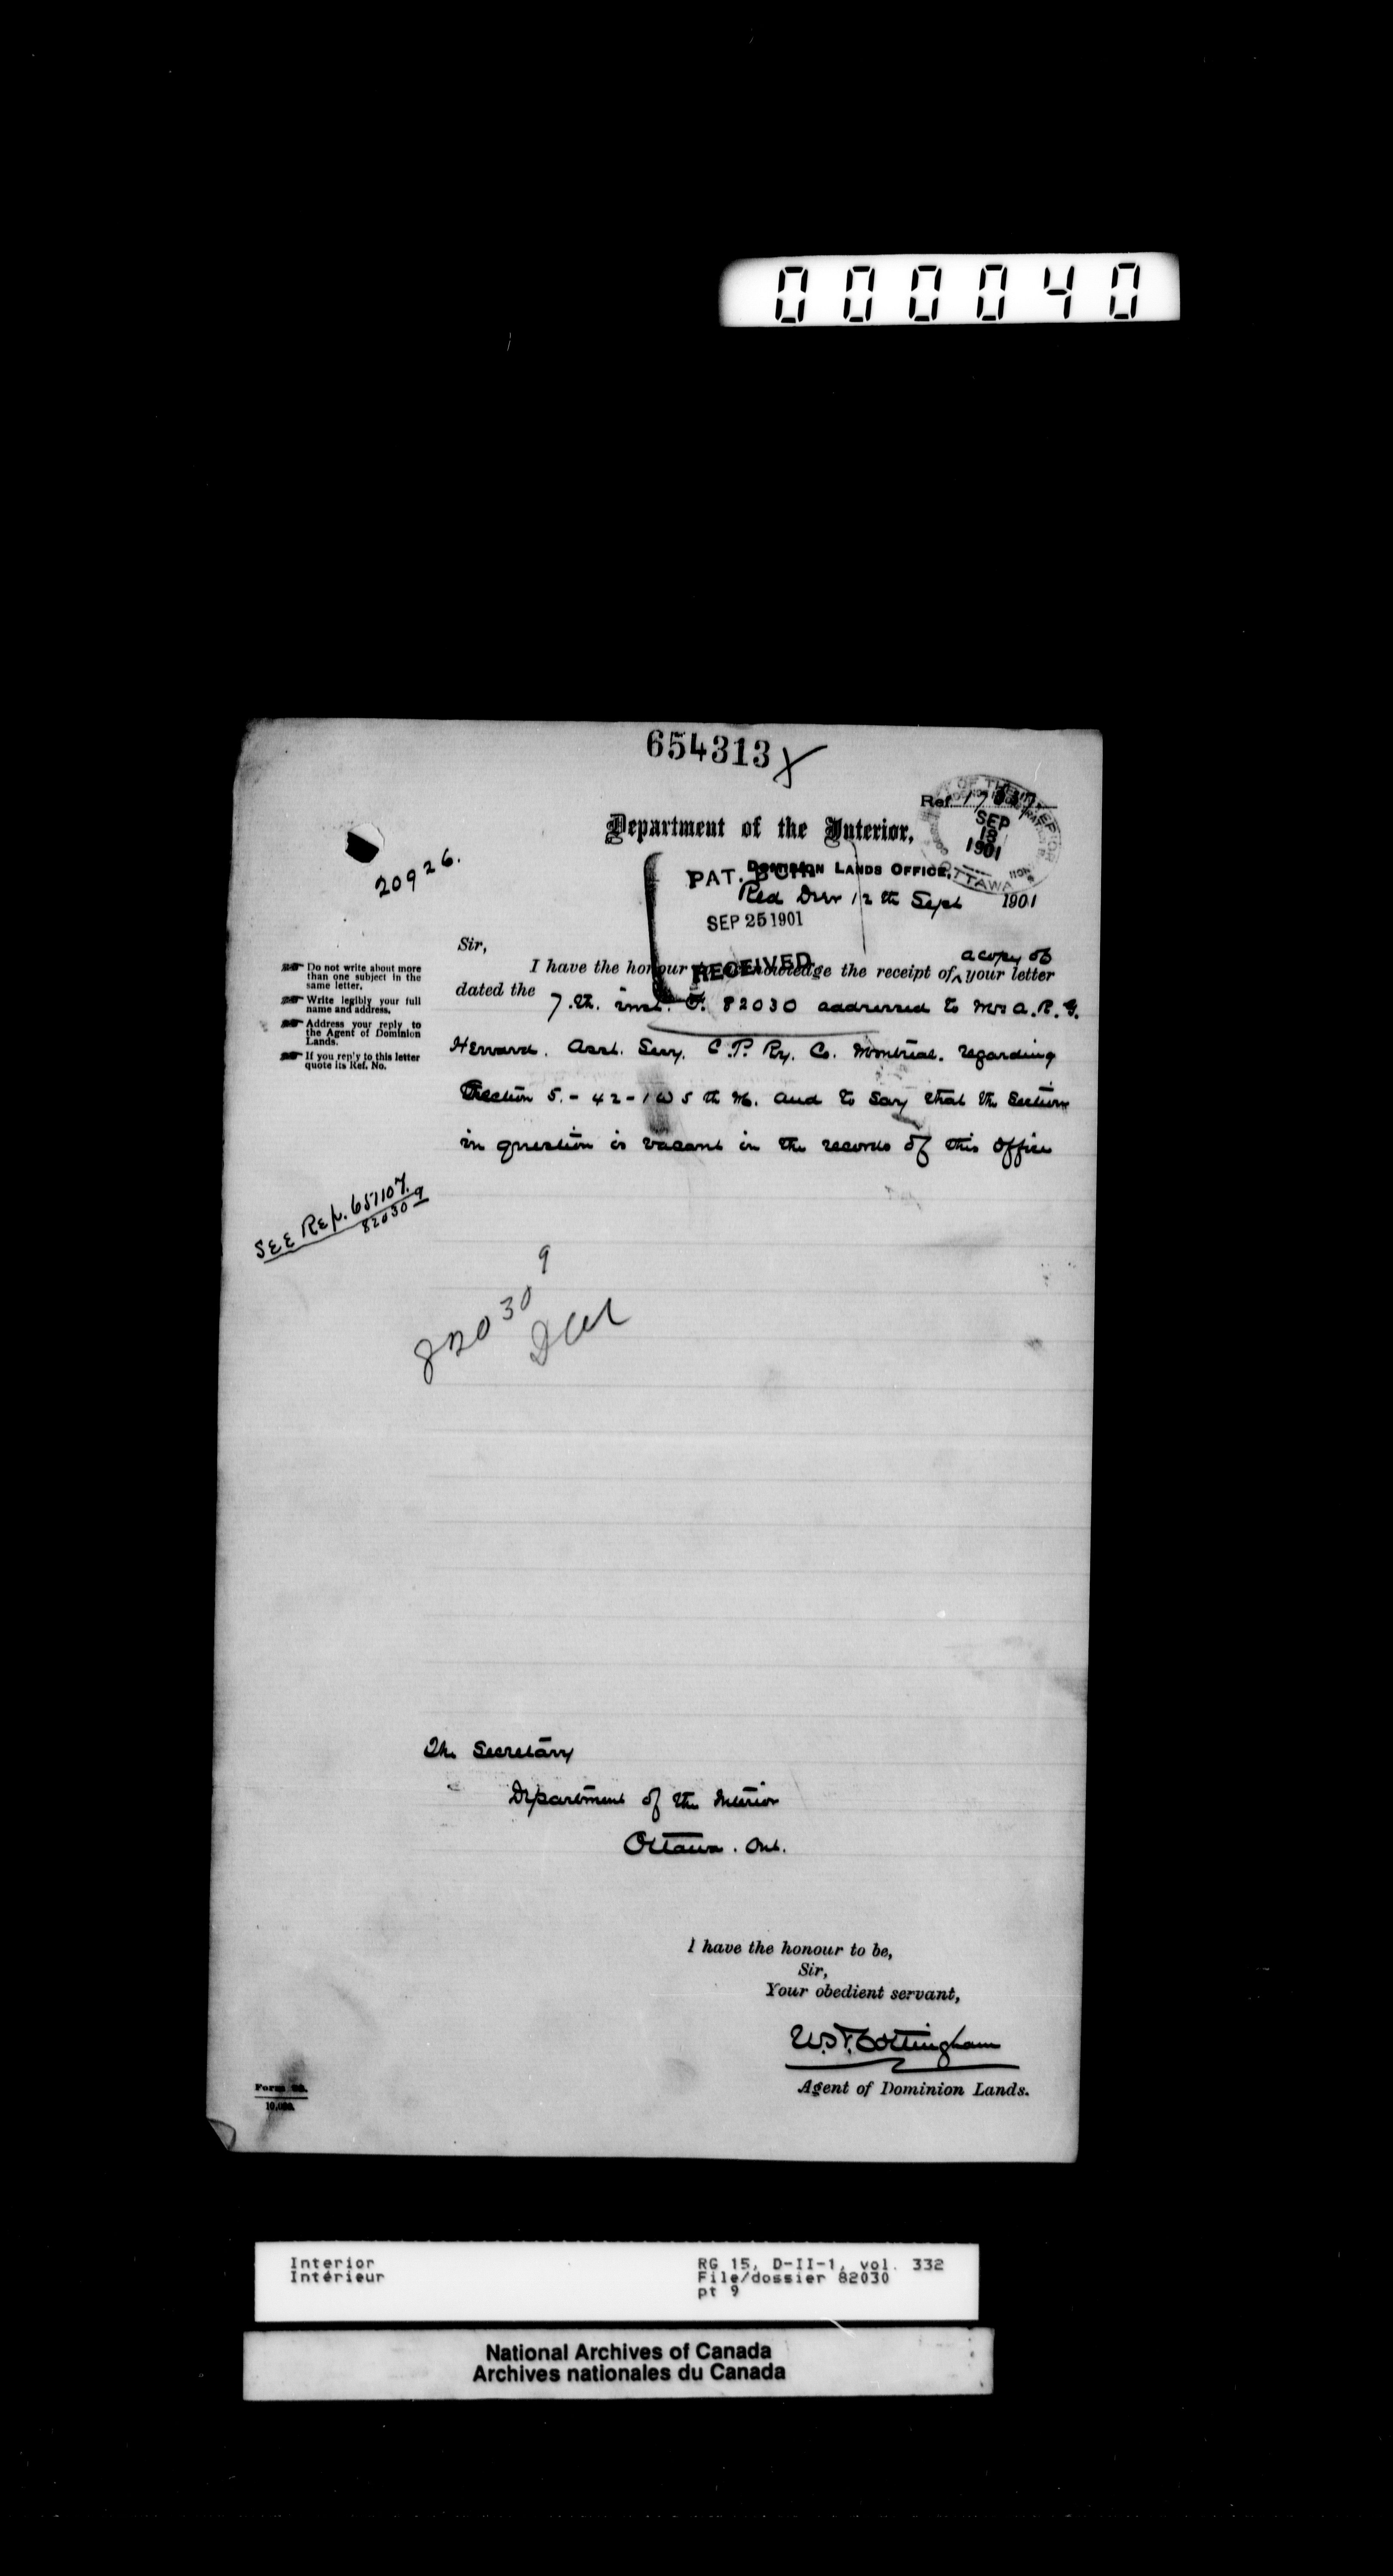 000040
654313
Ref. 17
DEPARTMENT OF THE INTERIOR
SEP
1901
OTTAWA
Department of the Interior,
20926.
DOMINION LANDS OFFICE,
PAT.
Red Deer 12th Sept 1901
SEP 25 1901
RECEIVED
Sir,
a copy of
I have the honour to acknowledge the receipt of ‸ your letter
dated the 7.th. inst. F. 82030 addressed to Mr. A. R. G.
Heward. Asst. Secy. C.P. Ry. Co. Montreal. regarding
Section 5.-42-1 W 5th M. and to say that the Section
in question is vacant in the records of this office
Do not write about more
than one subject in the
same letter.
Write legibly your full
name and address.
Address your reply to
the Agent of Dominion
Lands.
If you reply to this letter
quote its Ref. No.
SEE Rep. 651107.
82030 9
82030 9
The Secretary
Department of the Interior
Ottawa. Ont.
I have the honour to be,
Sir,
Your obedient servant,
W. F. Cottingham
Agent of Dominion Lands.
Form
10,000.
Interior
Intérieur
RG 15, D-II-1, vol. 332
File/dossier 82030
pt 9
National Archives of Canada
Archives nationales du Canada